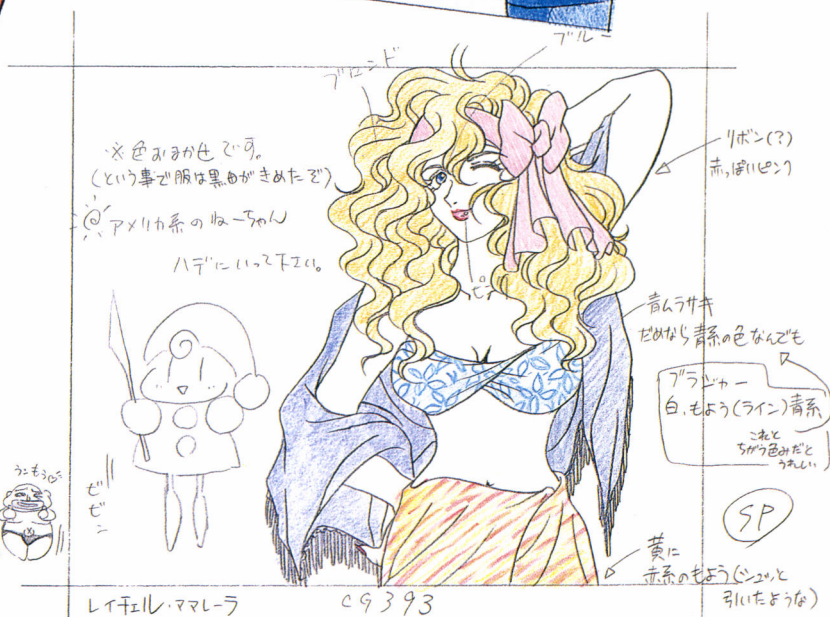 ブルー
ブロンド
※色おまかせです。
(という事で服は黒田がきめたぞ)
アメリカ系のねーちゃん
ハデにいって下さい。
リボン(?)
赤っぽいピンク
青ムラサキ
だめなら青系の色なんでも
ブラジャー
白、もよう(ライン)青系
これと
ちがう色みだと
うれしい
うンもぅ♡
ビビン
SP
黄に
赤系のもよう(ビシュッと
引いたような)
レイチェル・ママレーラ
CG393